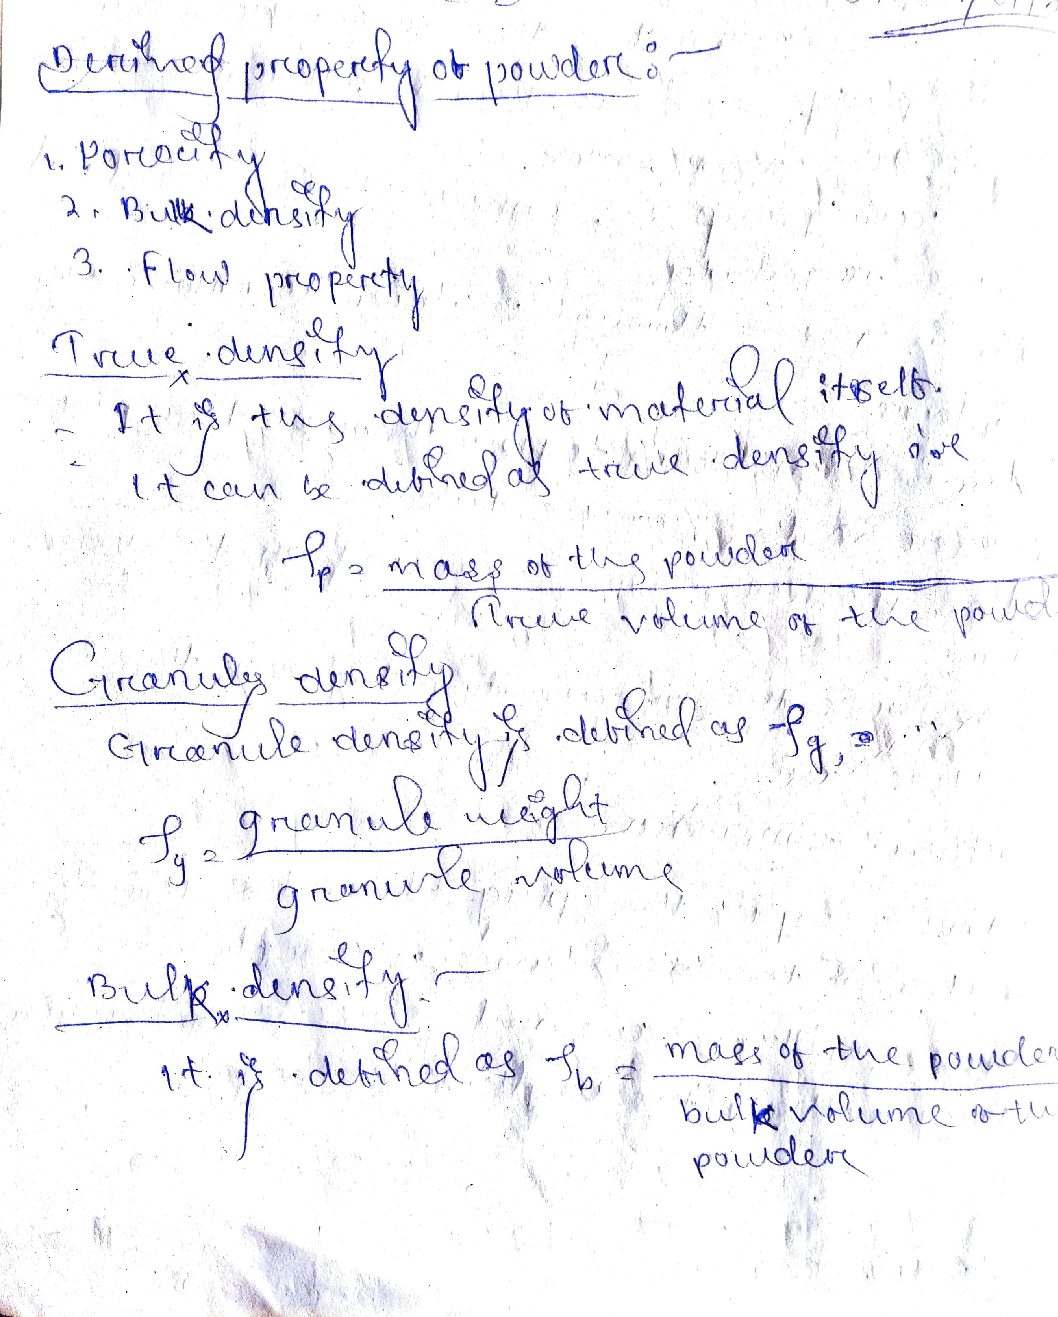 Derived property of powder :-
1. Porocity
2. Bulk density
3. Flow property
True density
- It is the density of material itself.
- It can be defined as true density is
ρp = mass of the powder
True volume of the powd
Granule density
Granule density is defined as ρg, = ...
ρg = granule weight
granule volume
Bulk density :-
It is defined as ρb = mass of the powder
bulk volume of th
powder